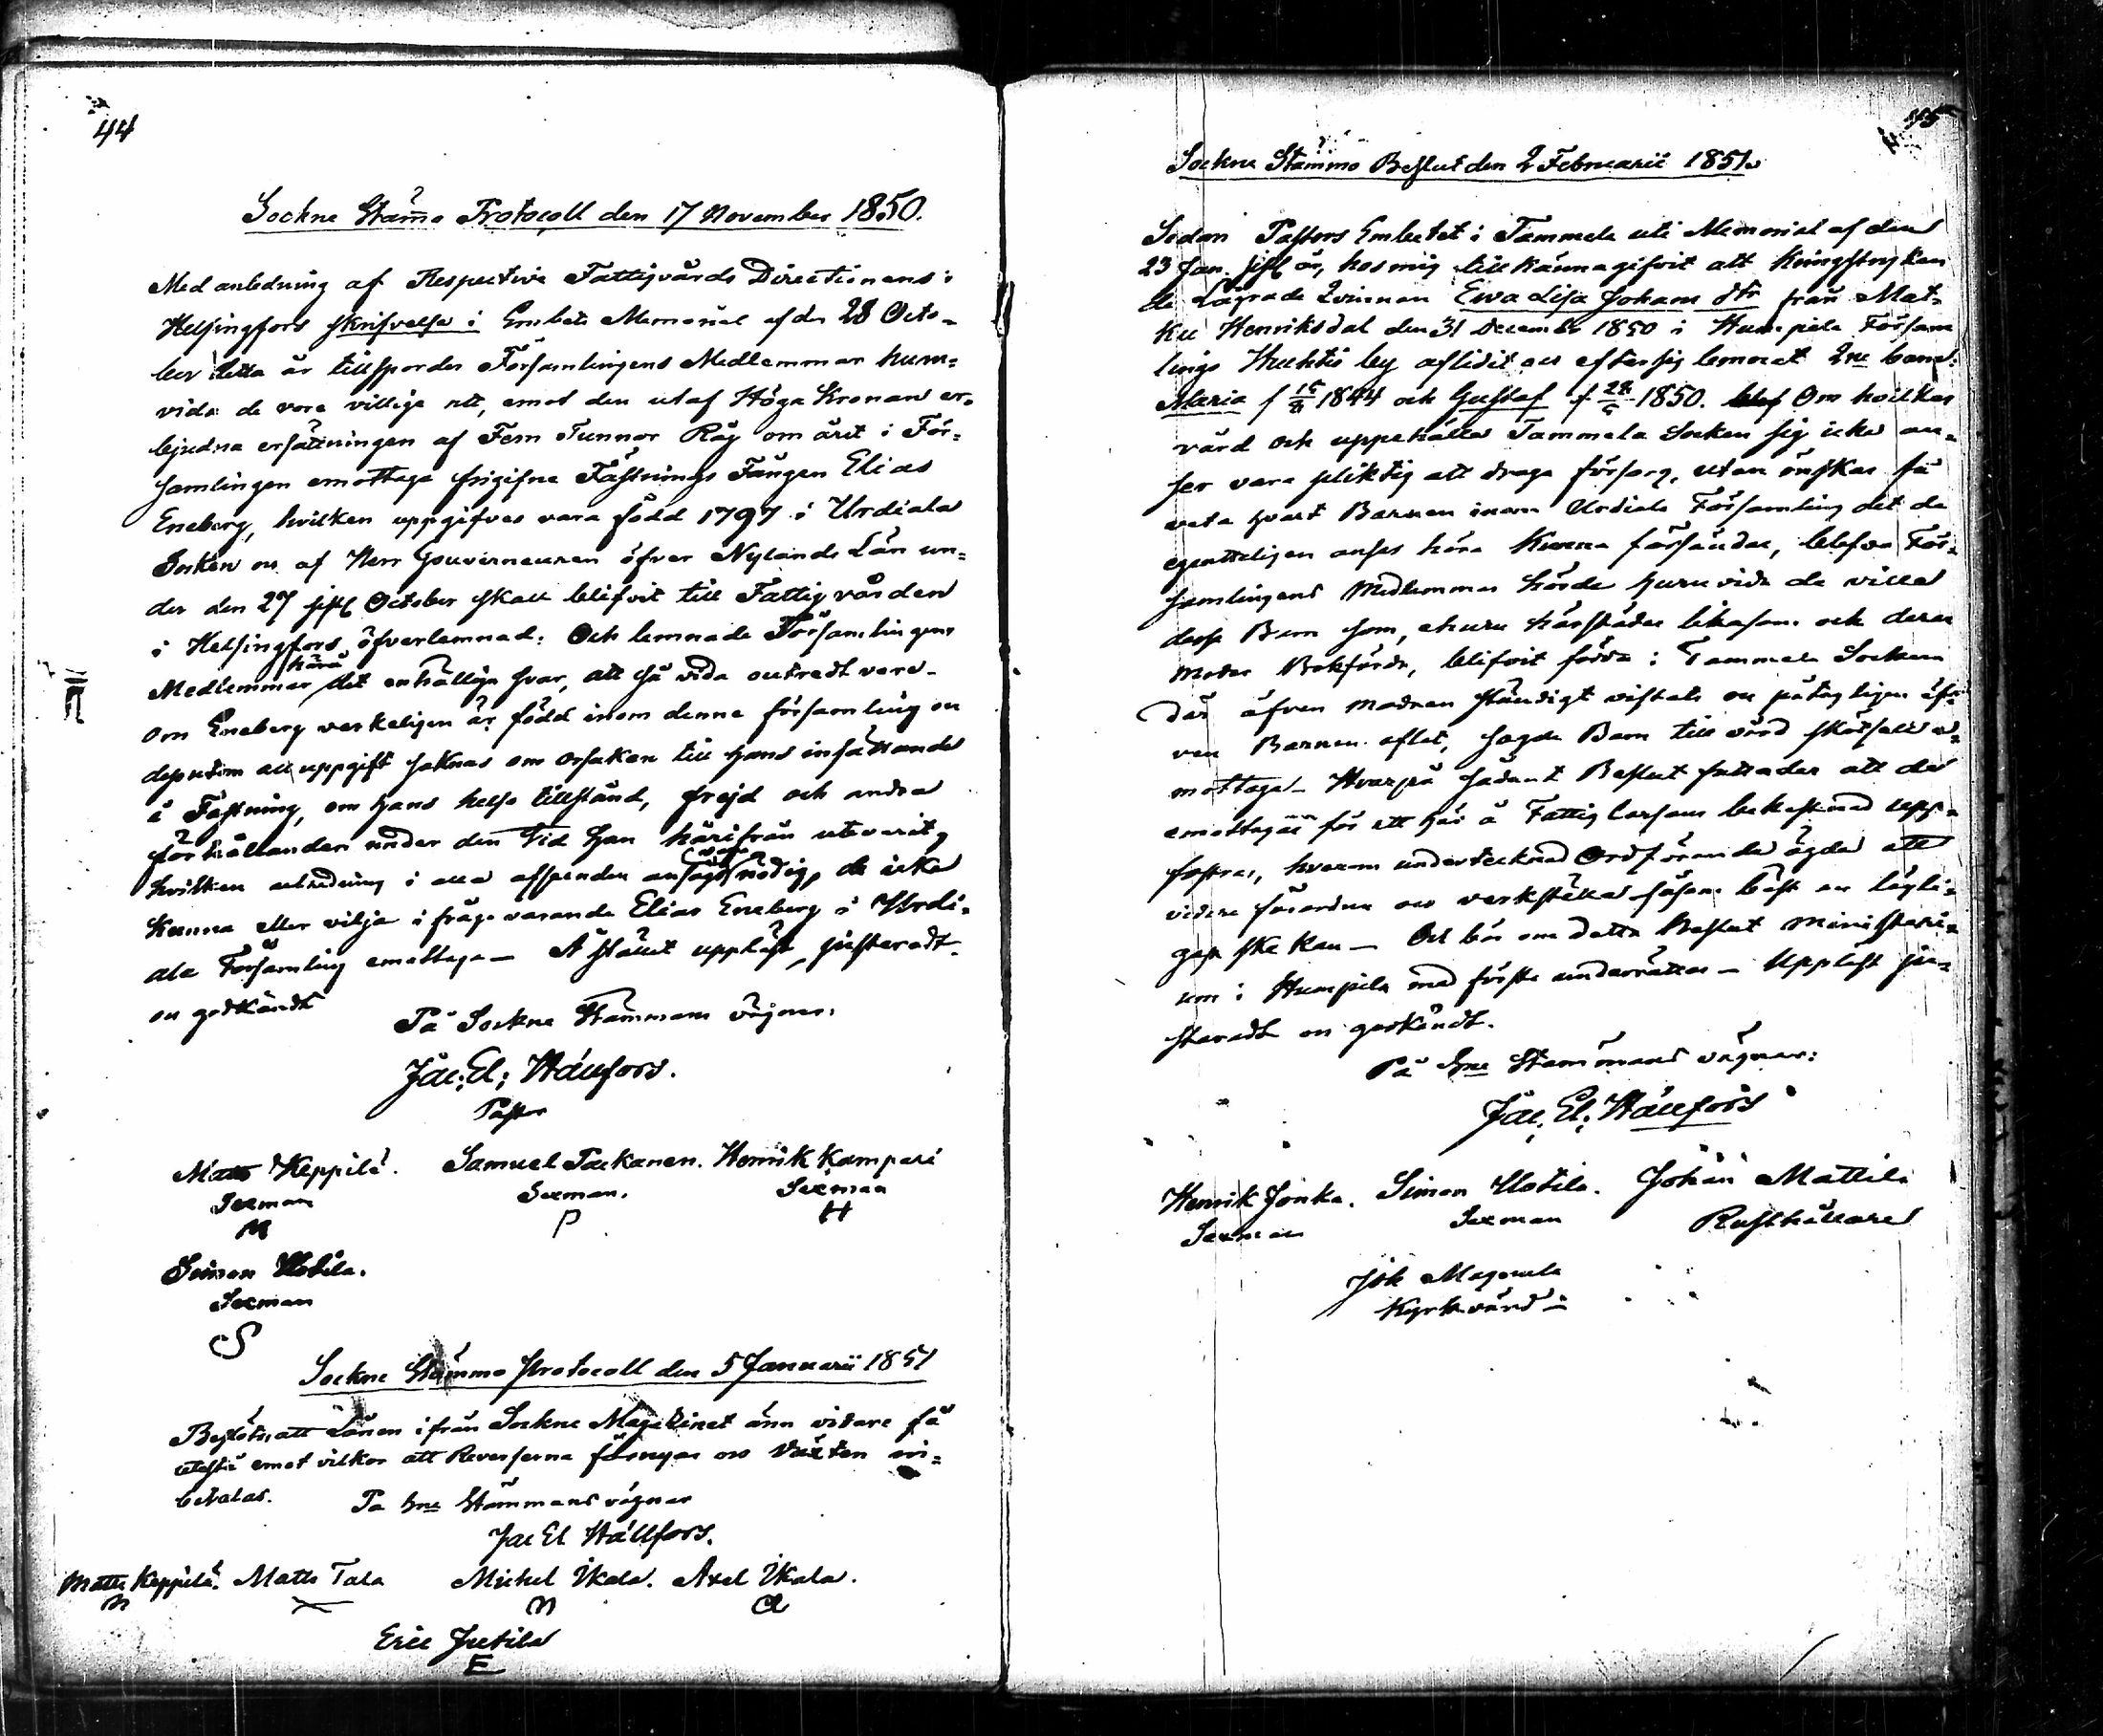 44
Sockne Stämmo Protocoll den 17 November 1850.
Med anledning af Respective Fattigvårds Directionens i
Helsingfors skrifvelse i Embets Memorial af den 28 Octo-
ber detta år tillspordes Församlingens Medlemmar huru-
vida de vore villige att, emot den utaf Höga Kronan er-
bjudna ersättningen af Fem Tunnor Råg om året i För-
samlingen emottaga frigifne Fästnings Fången Elias
Eneberg, hvilken uppgifves vara född 1797 i Urdiala
Socken och af Herr Gouverneuren öfver Nylands Län un-
der den 27 sistl October skall blifvit till Fattigvården
i Helsingfors öfverlemnad: Och lemnade Församlingens
Medlemmar härå det enhälliga svar, att så vida outredt vore
om Eneberg verkeligen är född inom denne församling och
dessutom all uppgift saknas om orsaken till hans insättande
å Fästning, om hans helso tillstånd, frejd och andra
förhållanden under den tid han härifrån utevarit,
hvilken utredning i alla afseenden ansågs vara nödig, de icke
kunna eller vilja i fråga varande Elias Eneberg i Urdi-
ala Församling emottaga - På stället uppläst, justeradt
och godkändt
På Sockne Stämmans vägnar:
Jac; El; Hällfors.
Pastor
Matts Keppilä. Samuel Packanen. Henrik Kampari
Sexman Sexman. Sexman
M P H
Simon Uotila.
Sexman
S
Sockne Stämmo Protocoll den 5 Januarii 1851
Beslöts att Lånen ifrån Sockne Magazinet änn vidare få
utestå emot vilkor att Reverserna förnyas och Växten in-
betalas.
På Sne Stämmans vägnar
Jac El Hällfors.
Matts Keppilä. Matts Tala Michel Ikala. Axel Ikala.
M M A
Eric Jutila
E
45
Sockne Stämmo Beslut den 2 Februarii 1851.
Sedan Pastors Embetet i Tammela uti Memorial af den
23 Jan. sistl år, hos mig tillkännagifvit att Kringstryken
de Lägrade Qvinnan Ewa Lisa Johans dtr från Mat-
ku Henriksdal den 31 December 1850 i Humpila Försam
lings Huhtis by aflidit och efter sig lemnat 2ne barn:
Maria f 1844 och Gustaf f 1850. Om hvilkas
vård och uppehälle Tammela Socken sig icke an-
ser vara pliktig att draga försorg, utan önskar få
veta hvart Barnen inom Urdiala Församling det de
egentteligen anses höra kunna försändas, blefvo För-
samlingens Medlemmar hörde huruvida de ville
dessa Barn som, ehuru härstädes likasom och deras
moder Bokförda, blifvit födda i Tammela Socken
der äfven modren ständigt vistats och påtagligen äf-
ven Barnen aflat, sagde Barn till vård skötsell e-
mottaga - Hvarpå sådant Beslut fattades att de
emottagas för att här å Fattig Cassans bekostnad upp-
fostras, hvarom undertecknad Ordförande ägde att
vidare förordna och verkställa såsom bäst och lägli-
gast ske kan - Och bör om detta Beslut Ministeri-
um i Humpila med första underrättas - Uppläst ju-
steradt och godkändt.
På Sne Stämmans vägnar:
Jac, El; Hällfors
Henrik Jonka. Simon Uotila. Johan Mattila
Sexman Sexman Rusthållare
Joh Magoula
Kyrkvärd